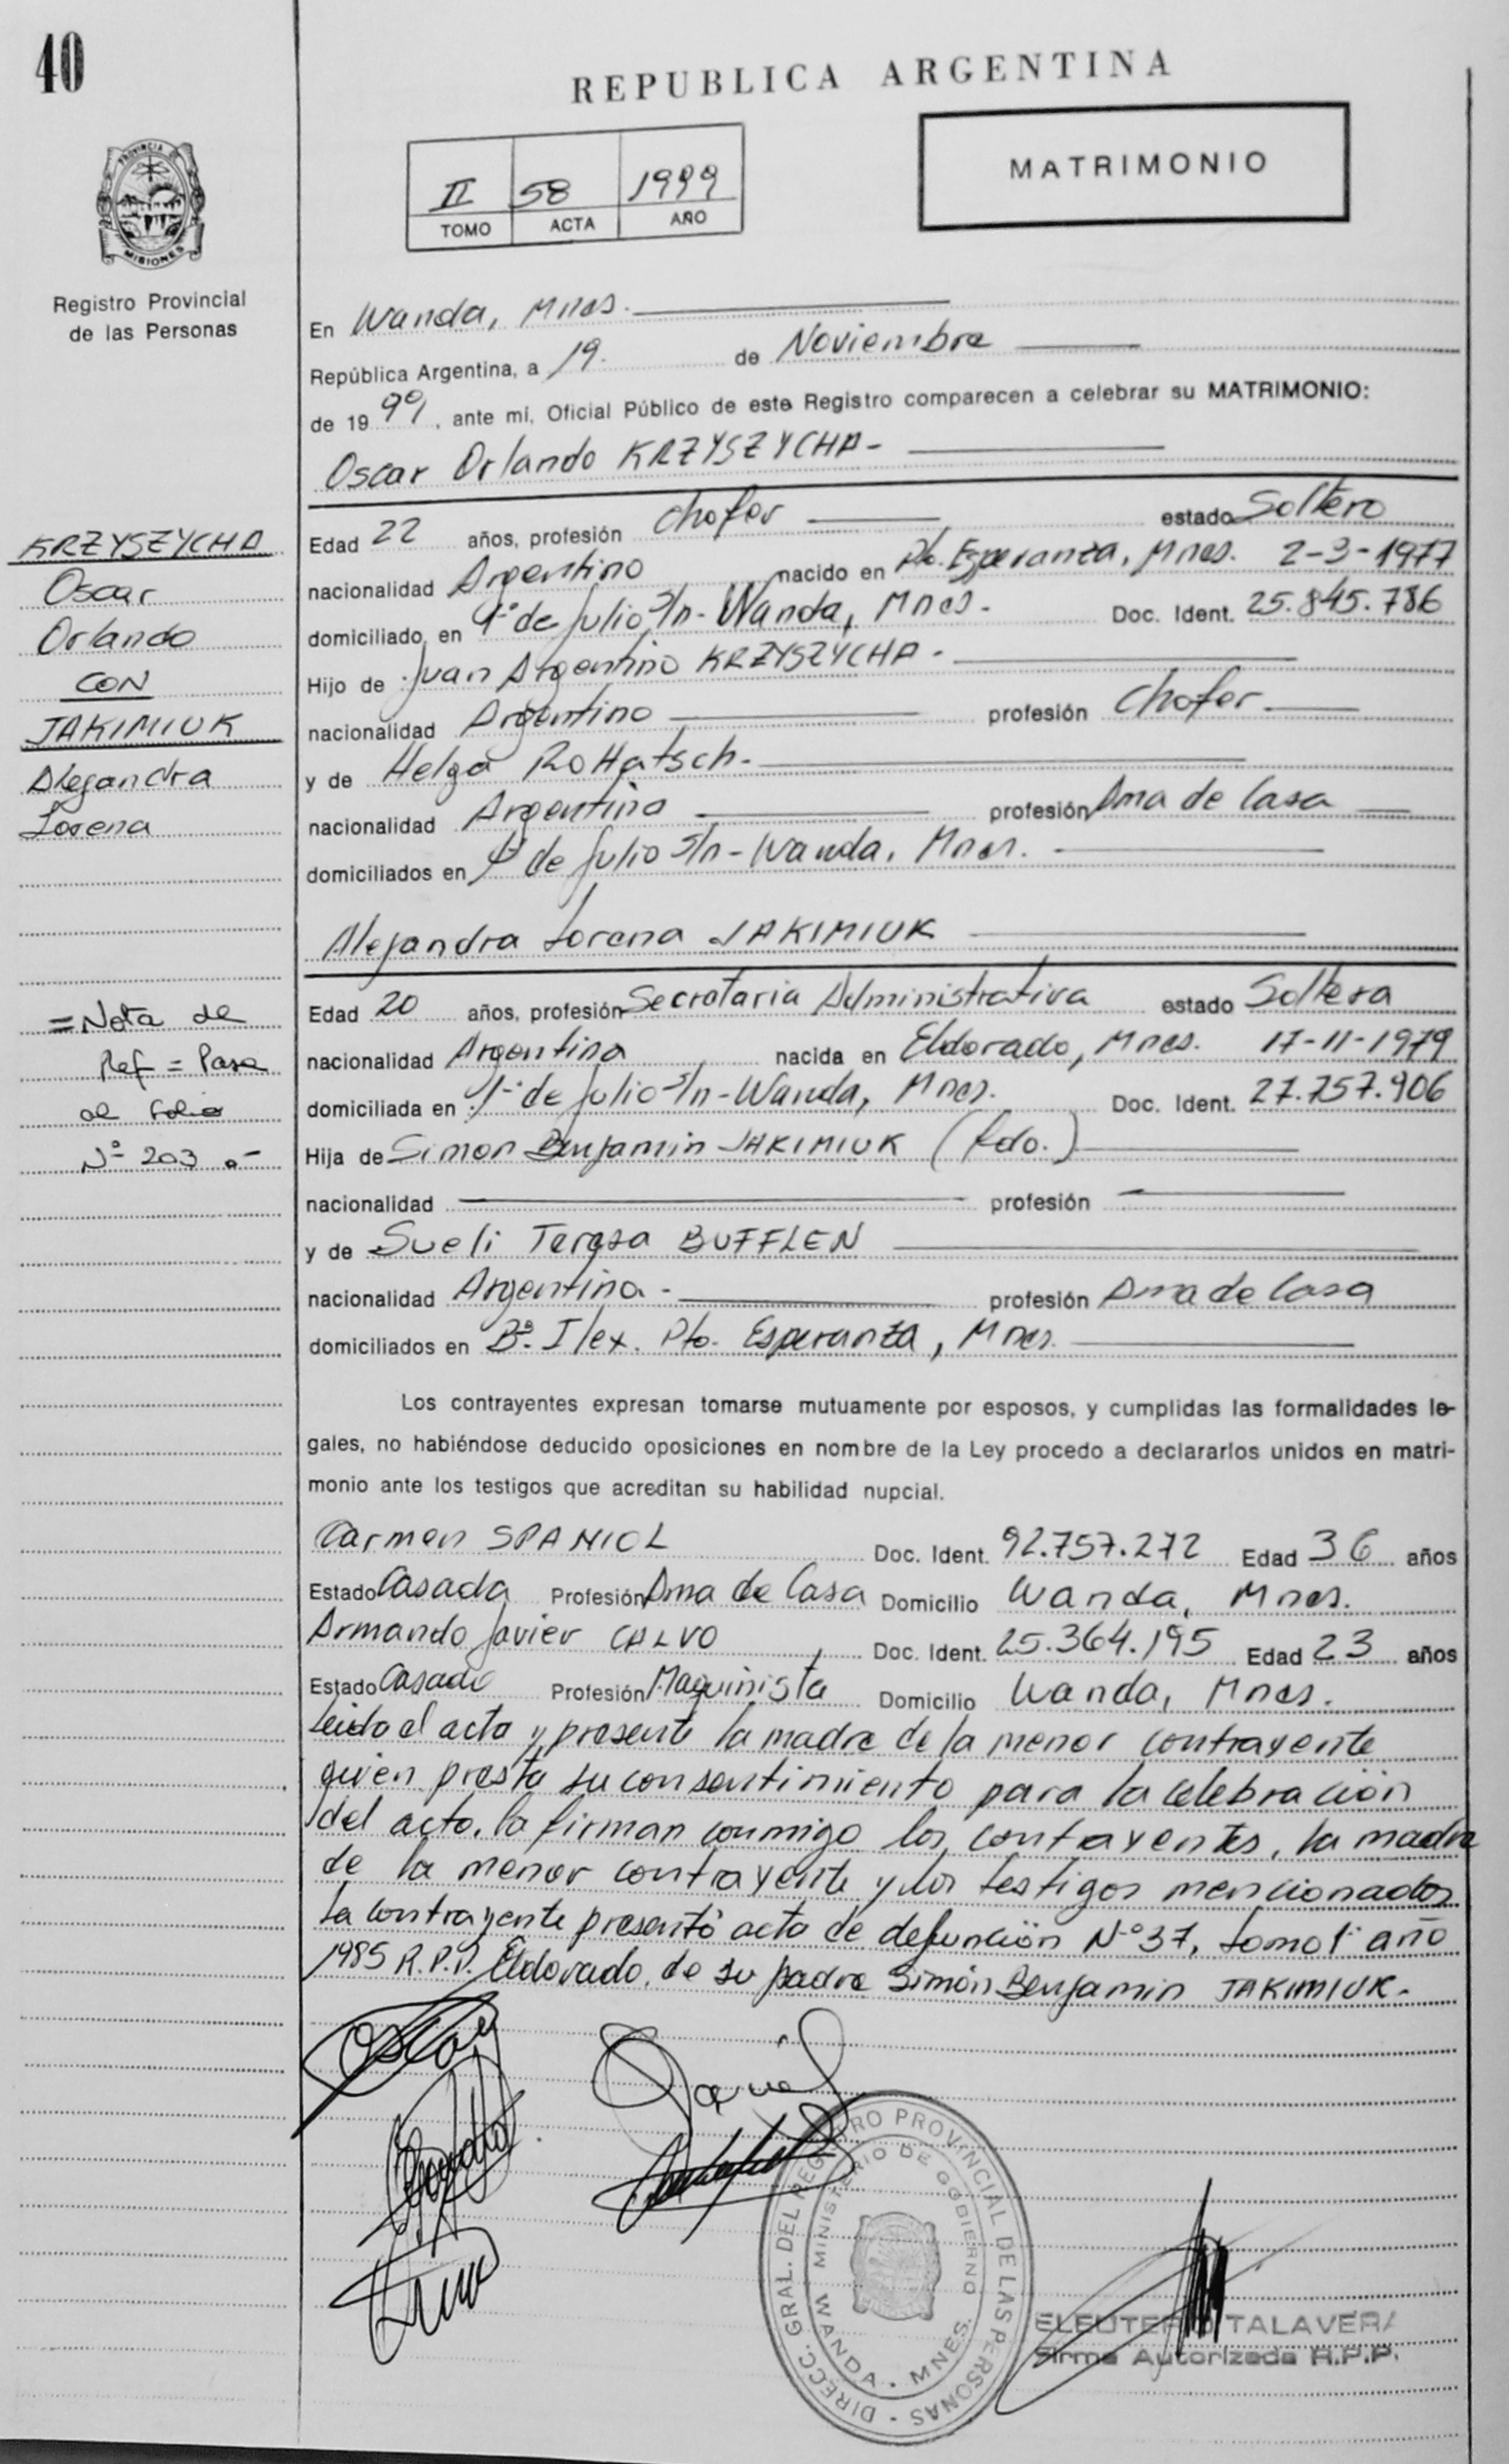 40
REPUBLICA ARGENTINA
II 58 1999
TOMO ACTA AÑO
MATRIMONIO
PROVINCIA
MISIONES
Registro Provincial
de las Personas
KRZYSZYCHA
Oscar
Orlando
CON
JAKIMIUK
Alejandra
Lorena
=Nota de
Ref = Pasa
al folio
Nº 203.-
En Wanda, Mnes.
República Argentina, a 19. de Noviembre
de 1999, ante mí, Oficial Público de este Registro comparecen a celebrar su MATRIMONIO:
Oscar Orlando KRZYSZYCHA-
Edad 22 años, profesión Chofer estado Soltero
nacionalidad Argentino nacido en Pto. Esperanza, Mnes. 2-3-1977
domiciliado en de Julio S/n- Wanda, Mnes. Doc. Ident. 25.845.786
Hijo de Juan Argentino KRZYSZYCHA-
nacionalidad Argentino profesión Chofer
y de Helga Rottatsch.
nacionalidad Argentina profesión Ama de Casa
domiciliados en de Julio S/n-Wanda, Mnes.
Alejandra Lorena JAKIMIUK
Edad 20 años, profesión Secretaria Administrativa estado Soltera
nacionalidad Argentina nacida en Eldorado, Mnes. 17-11-1979
domiciliada en de Julio S/n-Wanda, Mnes. Doc. Ident. 27.757.906
Hija de Simon Benjamin JAKIMIUK (fdo.)
nacionalidad profesión
y de Sueli Teresa BUFFLEN
nacionalidad Argentina- profesión Ama de Casa
domiciliados en Bº. Ilex. Pto. Esperanza, Mnes.
Los contrayentes expresan tomarse mutuamente por esposos, y cumplidas las formalidades le-
gales, no habiéndose deducido oposiciones en nombre de la Ley procedo a declararlos unidos en matri-
monio ante los testigos que acreditan su habilidad nupcial.
Carmen SPANIOL Doc. Ident. 92.757.272 Edad 36 años
Estado Casada Profesión Ama de Casa Domicilio Wanda, Mnes.
Armando Javier CALVO Doc. Ident. 25.364.195 Edad 23 años
Estado Casado Profesión Maquinista Domicilio Wanda, Mnes.
Leida el acta y presente la madre de la menor contrayente
quien presta su consentimiento para la celebración
del acto, la firman conmigo los contrayentes, la madre
de la menor contrayente y los testigos mencionados.
La contrayente presentó acta de defunción Nº 37, tomo 1º año
1985 R.P.P. Eldorado, de su padre Simón Benjamin JAKIMIUK-
Oscar
DIRECC. GRAL. DEL REGISTRO PROVINCIAL DE LAS PERSONAS
MINISTERIO DE GOBIERNO
WANDA - MNES.
ELEUTERIO TALAVERA
Firma Autorizada R.P.P.